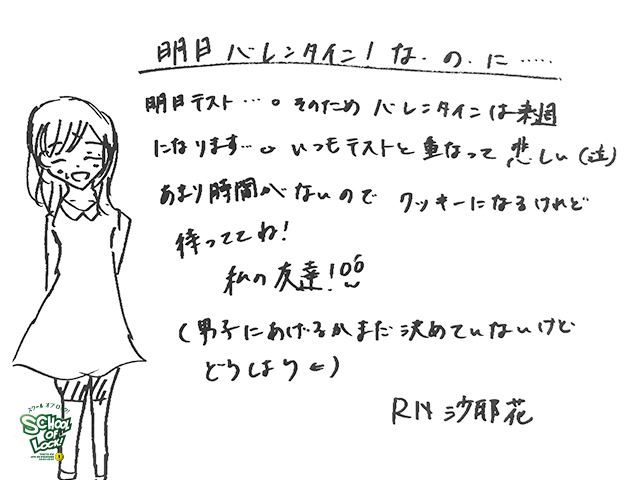 明日バレンタイン!な.の.に.....
明日テスト…。そのためバレンタインは来週
になります…。いつもテストと重なって悲しい(泣)
あまり時間がないのでクッキーになるけれど
待っててね!
私の友達!
(男子にあげるかまだ決めていないけど
どうしよう)
RN 沙耶花
スクール オブ ロック!
SCHOOL
OF
LOCK!